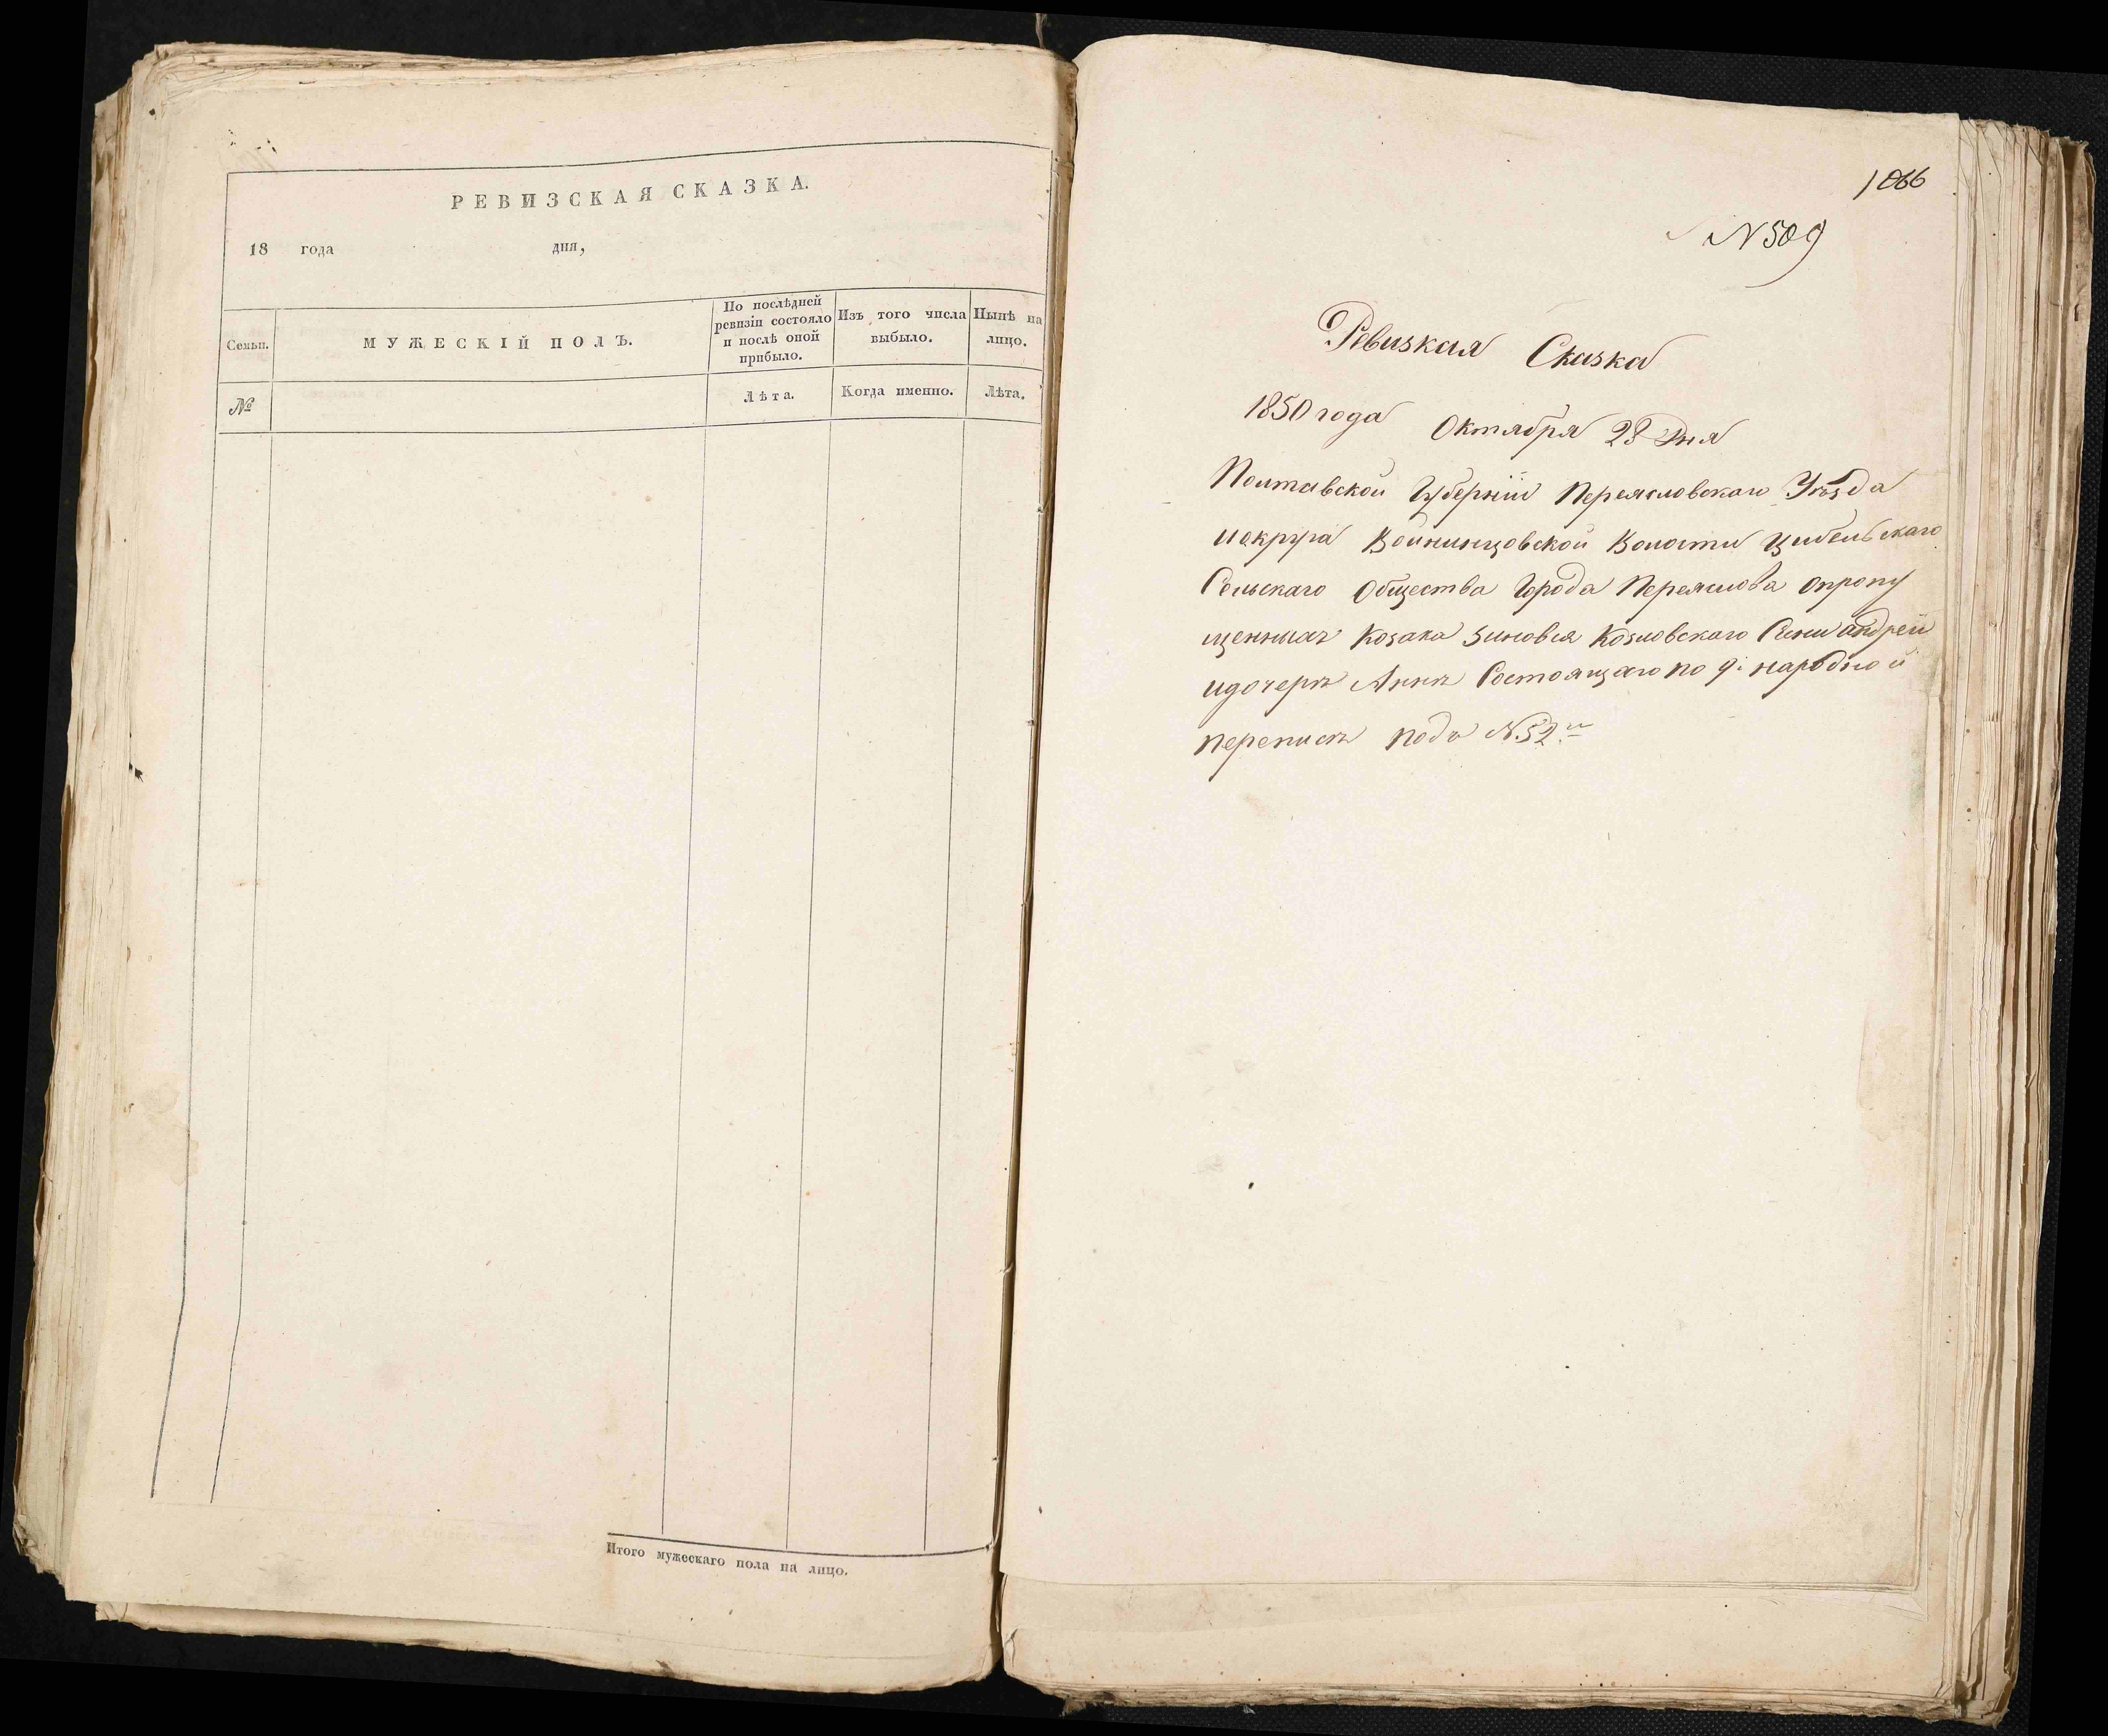 РЕВИЗСКАЯ СКАЗКА.
18 года дня,
Семьи.
МУЖЕСКІЙ ПОЛЪ.
По послѣдней
ревизіи состояло
и послѣ оной
прибыло.
Изъ того числа
выбыло.
Нынѣ на
лицо.
№
Лѣта.
Когда именно.
Лѣта.
Итого мужескаго пола на лицо.
1066
N 509
Ревизкая Сказка
1850 года Октября 28 Дня
Полтавской Губерніи Переясловскаго Уѣзда
иокруга Войнинцовской Волости Цибельскаго
Сельскаго Общества Города Переяслова опропу
щенныхъ Козака Зиновия Козловскаго Сыни андрей
идочерѣ Аннѣ Состоящаго по 9й народной
переписѣ подъ N. 52м